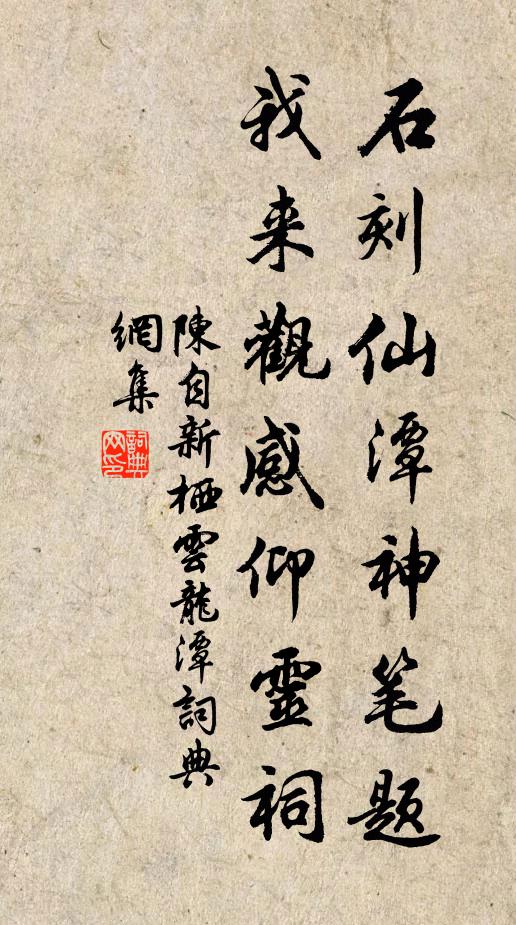 石刻仙潭神笔题
我来觀感仰靈祠
陳自新栖雲龍潭詞典
網集
詞典网印